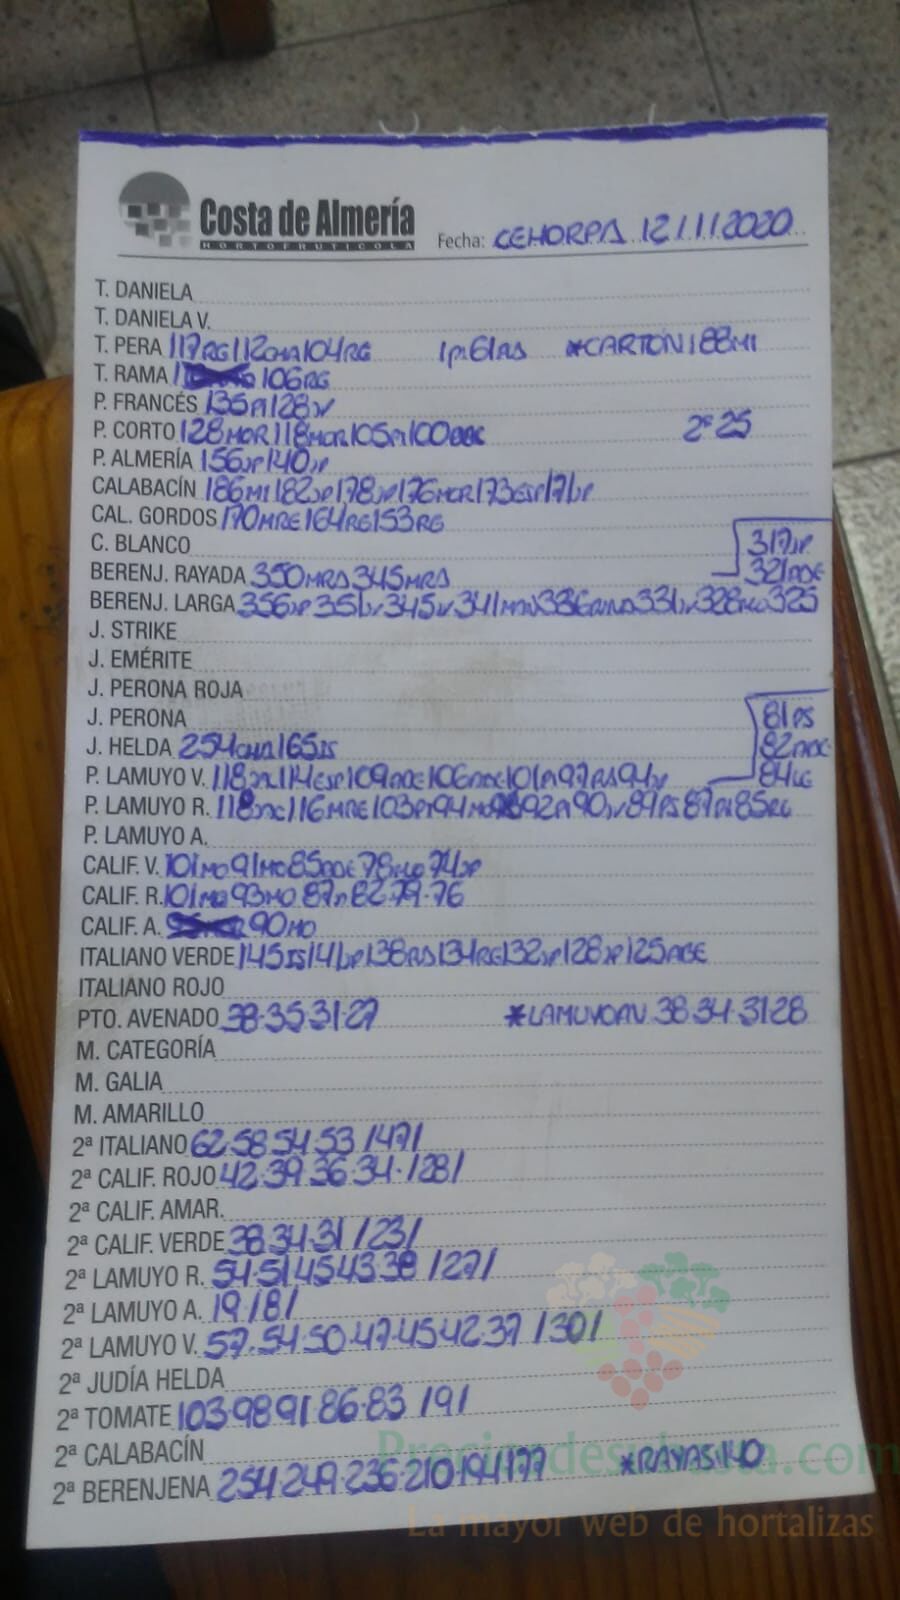 Costa de Almería
HORTOFRUTICOLA
Fecha: CEHORPA 12/11/2020
T. DANIELA
T. DANIELA V.
T. PERA 117RG 112CHA 104RG 1P.61RS *CARTON 188MI
T. RAMA 106RG
P. FRANCÉS 135PI 128JV
P. CORTO 128MOR 118MOR 105PI 100 2ª 25
P. ALMERÍA 156JP 140JP
CALABACÍN 186MI 182JP 178JP 176MOR 173ESP 171JP
CAL. GORDOS 170MRE 164RG 153RG
C. BLANCO 317JP
BERENJ. RAYADA 350MRA 345MRA 321
BERENJ. LARGA 356JP 351JV 345JV 341 336 331JV 328 325
J. STRIKE
J. EMÉRITE
J. PERONA ROJA
J. PERONA 81PS
J. HELDA 254CHA 165IS 82
P. LAMUYO V. 118 114ESP 109 106 101PI 97RS 94JP 84LE
P. LAMUYO R. 118 116MRE 103PI 94MO 92PI 90JV 89PS 87PI 85RG
P. LAMUYO A.
CALIF. V. 101MO 91MO 85 78MO 74JP
CALIF. R. 101MO 93MO 87 82·79·76
CALIF. A. 90MO
ITALIANO VERDE 145IS 141JP 138RS 134RG 132JP 128JP 125ABE
ITALIANO ROJO
PTO. AVENADO 38·35·31·27 *LAMUYO AV. 38·34·31·28
M. CATEGORÍA
M. GALIA
M. AMARILLO
2ª ITALIANO 62·58·54·53 /47/
2ª CALIF. ROJO 42·39·36·34·/28/
2ª CALIF. AMAR.
2ª CALIF. VERDE 38·34·31 /23/
2ª LAMUYO R. 54·51·45·43·38 /27/
2ª LAMUYO A. 19 /8/
2ª LAMUYO V. 57·54·50·47·45·42·37 /30/
2ª JUDÍA HELDA
2ª TOMATE 103·98·91·86·83 /9/
2ª CALABACÍN
2ª BERENJENA 254·249·236·210·194·177 *RAYAS:140
Preciosdesubasta.com
La mayor web de hortalizas